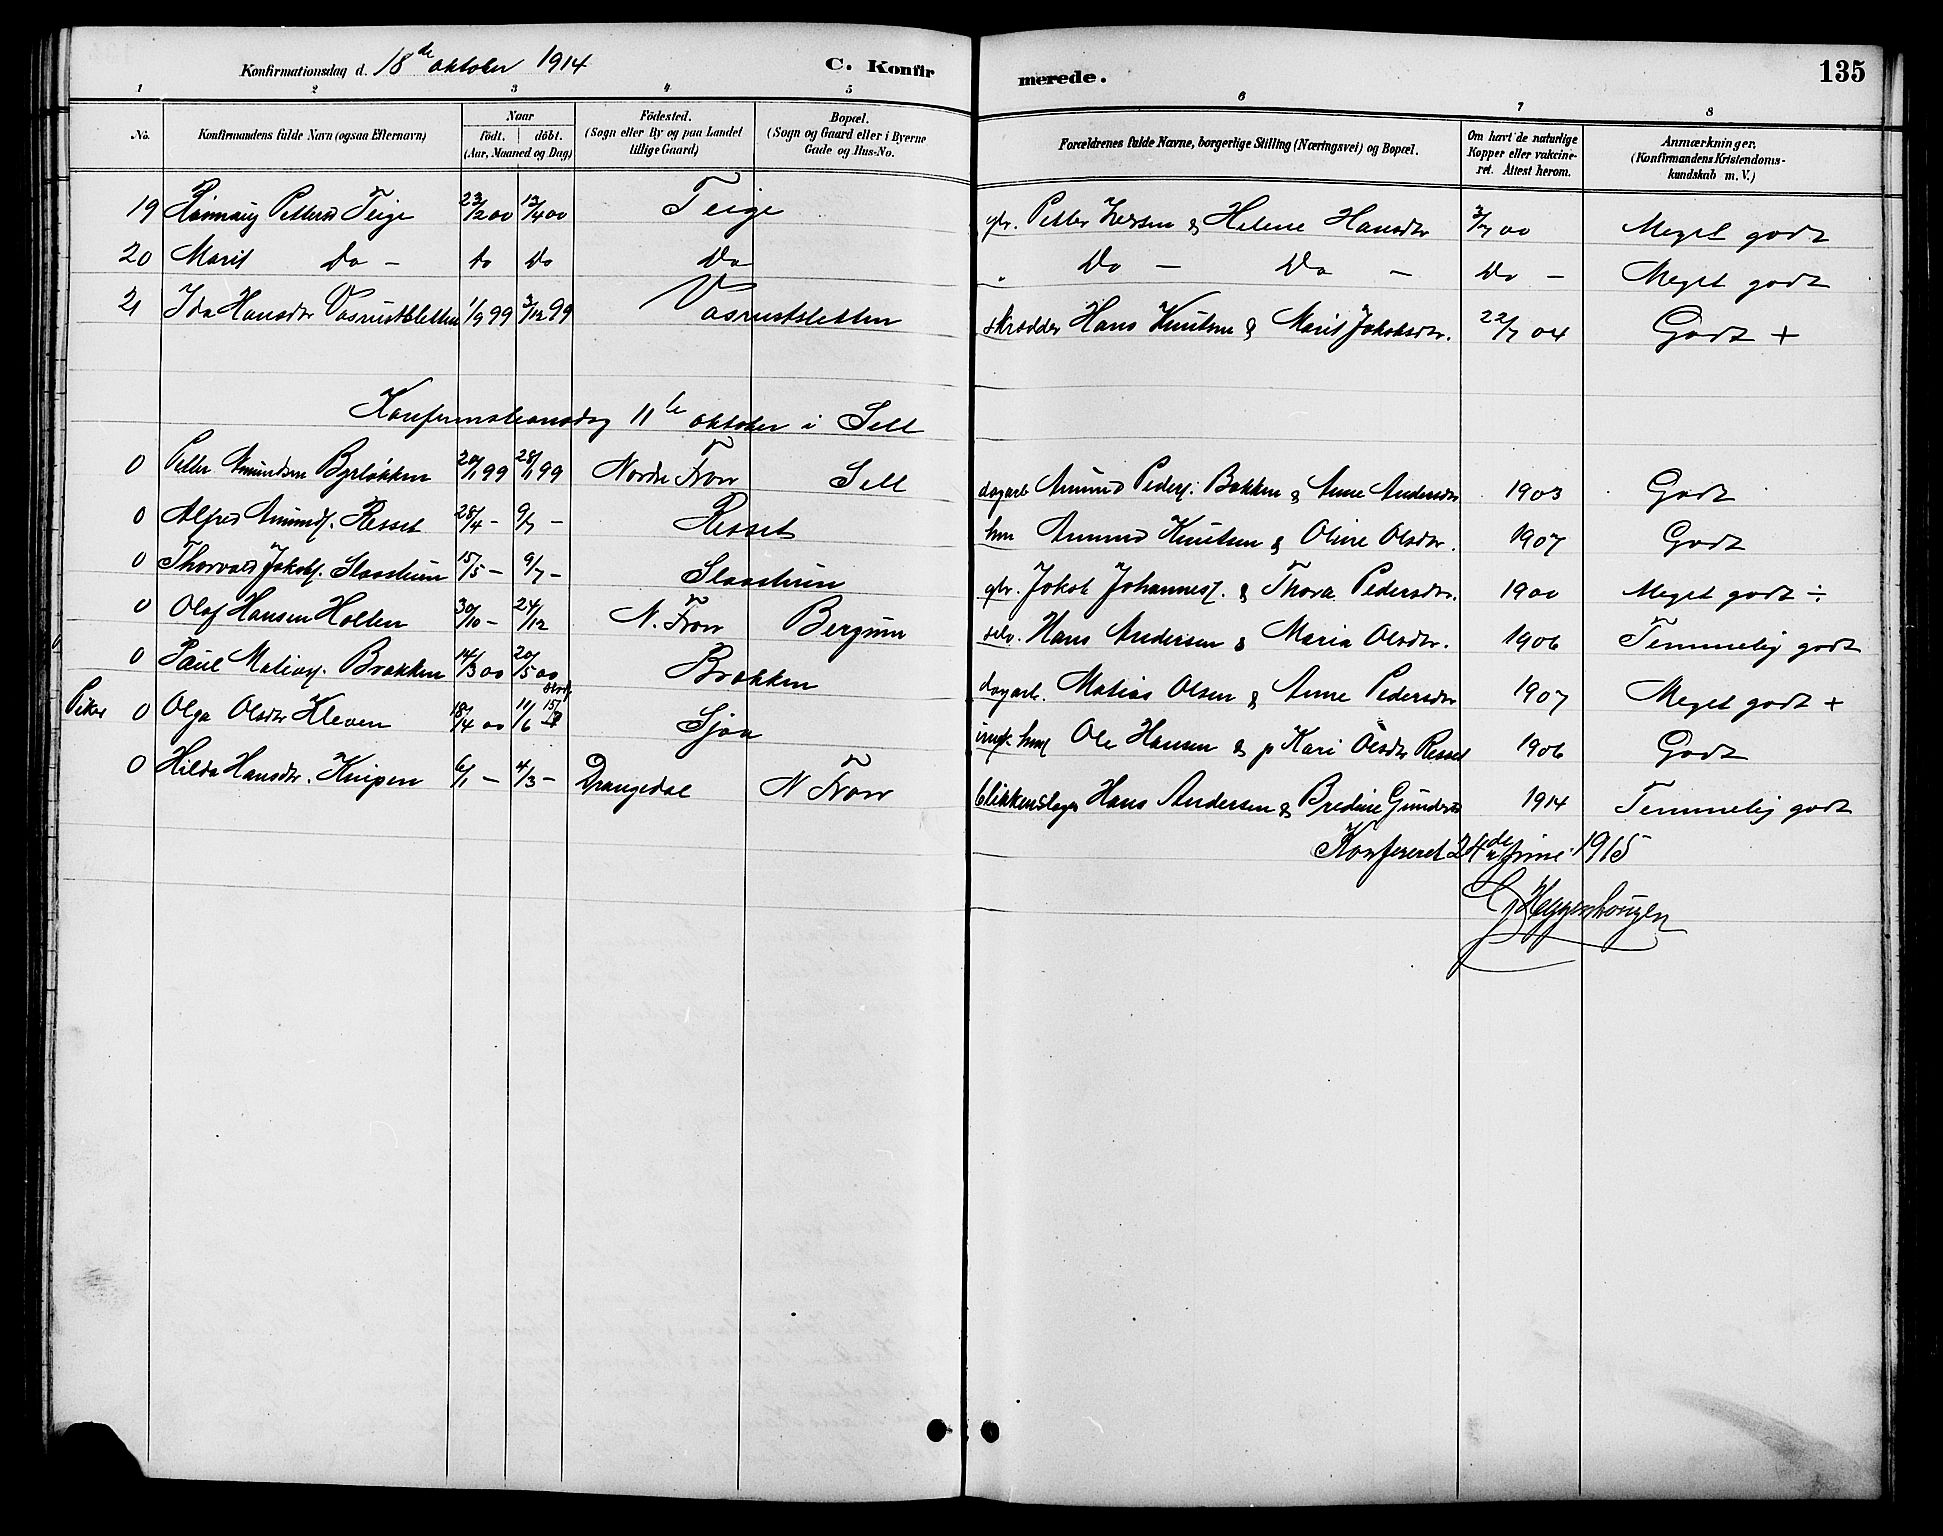 Konfirmationsdag d. 18de oktober 1914 C. Konfirmerede. 135
1 2 3 4 5 6 7 8
No. Konfirmandens fulde Navn (ogsaa Efternavn) Naar födt. döbt. (Aar, Maaned og Dag) Födested. (Sogn eller By og paa Landet tillige Gaard) Bopæl. (Sogn og Gaard eller i Byerne Gade og Hus-No. Forældrenes fulde Navne, borgerlige Stilling (Næringsvei) og Bopæl. Om havt de naturlige Kopper eller vakcineret. Attest herom. Anmærkninger. (Konfirmandens Kristendomskundskab m. V.)
19 Rönnaug Pettersd Teige 23/2 00 13/4 00 Teige gbr. Petter Iversen & Helene Hansdtr 3/7 00 Meget godt
20 Marit Do - do Do Do " Do - Do - Do - Meget godt
21 Ida Hansdtr Vasrustsletten 1/9 99 3/12 99 Vasrustsletten skrædder Hans Knutsen & Marit Jakobsdtr. 22/7 04 Godt +
Konfirmationsdag 11te oktober i Sell
0 Petter Amundsen Byrløkken 20/1 99 28/1 99 Nordre Fron Sell dagarb Amund Peders. Bakken & Anne Andersdtr 1903 Godt
0 Alfred Amunds. Resset 28/4 - 9/7 - Resset hm Amund Knutsen & Oline Olsdtr. 1907 Godt
0 Thorvald Jakobs. Slaastuen 15/5 - 9/7 - Slaastuen gbr. Jakob Johannes. & Thora Pedersdtr. 1900 Meget godt ÷
0 Olaf Hansen Holten 30/10 - 24/12 N. Fron Bergum selv. Hans Andersen & Maria Olsdtr. 1906 Temmelig godt
0 Paul Matias. Brækken 14/3 00 20/5 00 Brækken dagarb. Matias Olsen & Anne Pedersdtr 1907 Meget godt +
Piker 0 Olga Olsdtr Kleven 18/4 00 11/6 Sjoa Ole Hansen & p Kari Olsdtr Resset 1906 Godt
0 Hilda Hansdtr. Knipen 6/1 - 4/3 - Drangedal N Fron blikkenslager Hans Andersen & Bredine Gundersd 1914 Temmelig godt
Konfereret 24de juni 1915
Heggenhougen